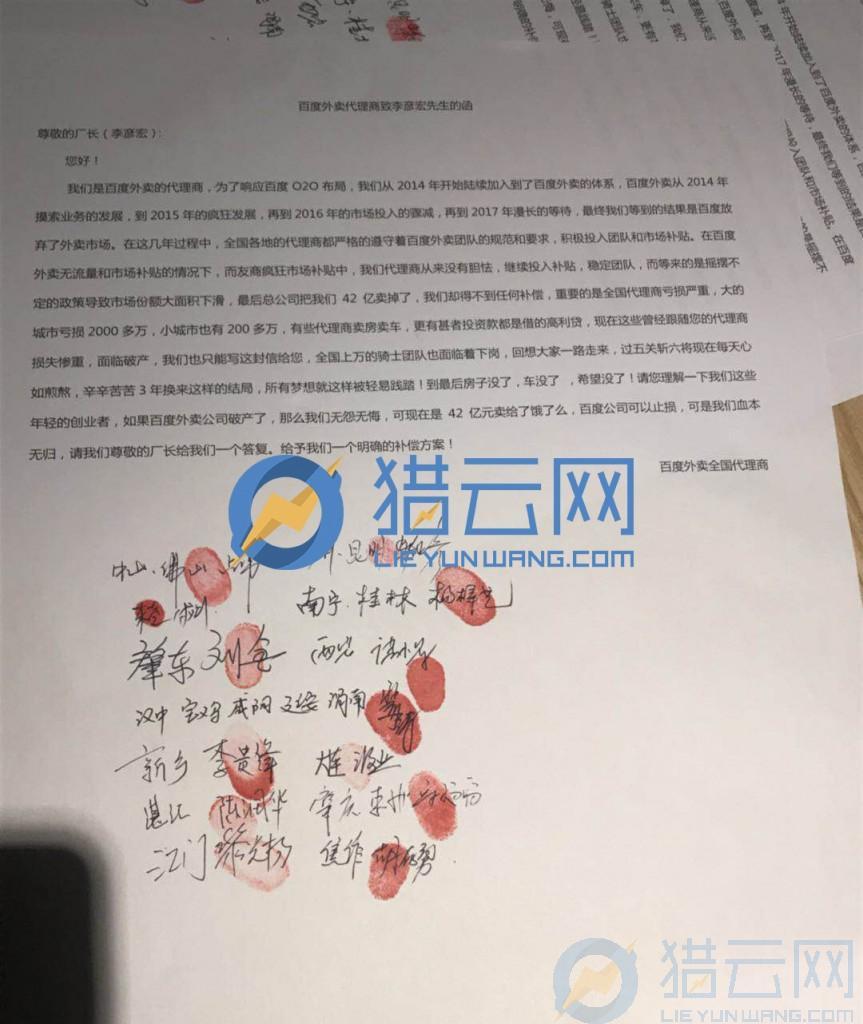 百度外卖代理商致李彦宏先生的函
尊敬的厂长（李彦宏）：
您好！
我们是百度外卖的代理商，为了响应百度 O2O 布局，我们从 2014 年开始陆续加入到了百度外卖的体系，百度外卖从 2014 年
摸索业务的发展，到 2015 年的疯狂发展，再到 2016 年的市场投入的骤减，再到 2017 年漫长的等待，最终我们等到的结果是百度放
弃了外卖市场。在这几年过程中，全国各地的代理商都严格的遵守着百度外卖团队的规范和要求，积极投入团队和市场补贴。在百度
外卖无流量和市场补贴的情况下，而友商疯狂市场补贴中，我们代理商从来没有胆怯，继续投入补贴，稳定团队，而等来的是摇摆不
定的政策导致市场份额大面积下滑，最后总公司把我们 42 亿卖掉了，我们却得不到任何补偿，重要的是全国代理商亏损严重，大的
城市亏损 2000 多万，小城市也有 200 多万，有些代理商卖房卖车，更有甚者投资款都是借的高利贷，现在这些曾经跟随您的代理商
损失惨重，面临破产，我们也只能写这封信给您，全国上万的骑士团队也面临着下岗，回想大家一路走来，过五关斩六将现在每天心
如煎熬，辛辛苦苦 3 年换来这样的结局，所有梦想就这样被轻易践踏！到最后房子没了，车没了 ，希望没了！请您理解一下我们这些
年轻的创业者，如果百度外卖公司破产了，那么我们无怨无悔，可现在是 42 亿元卖给了饿了么，百度公司可以止损，可是我们血本
无归，请我们尊敬的厂长给我们一个答复。给予我们一个明确的补偿方案！
百度外卖全国代理商
猎云网
LIEYUNWANG.COM
中山.佛山
昆明
南宁.桂林
肇东
汉中 宝鸡 咸阳 延安 渭南
新乡 李贵锋
湛江 陈润华 肇庆
江门
焦作
猎云网
LIEYUNWANG.COM